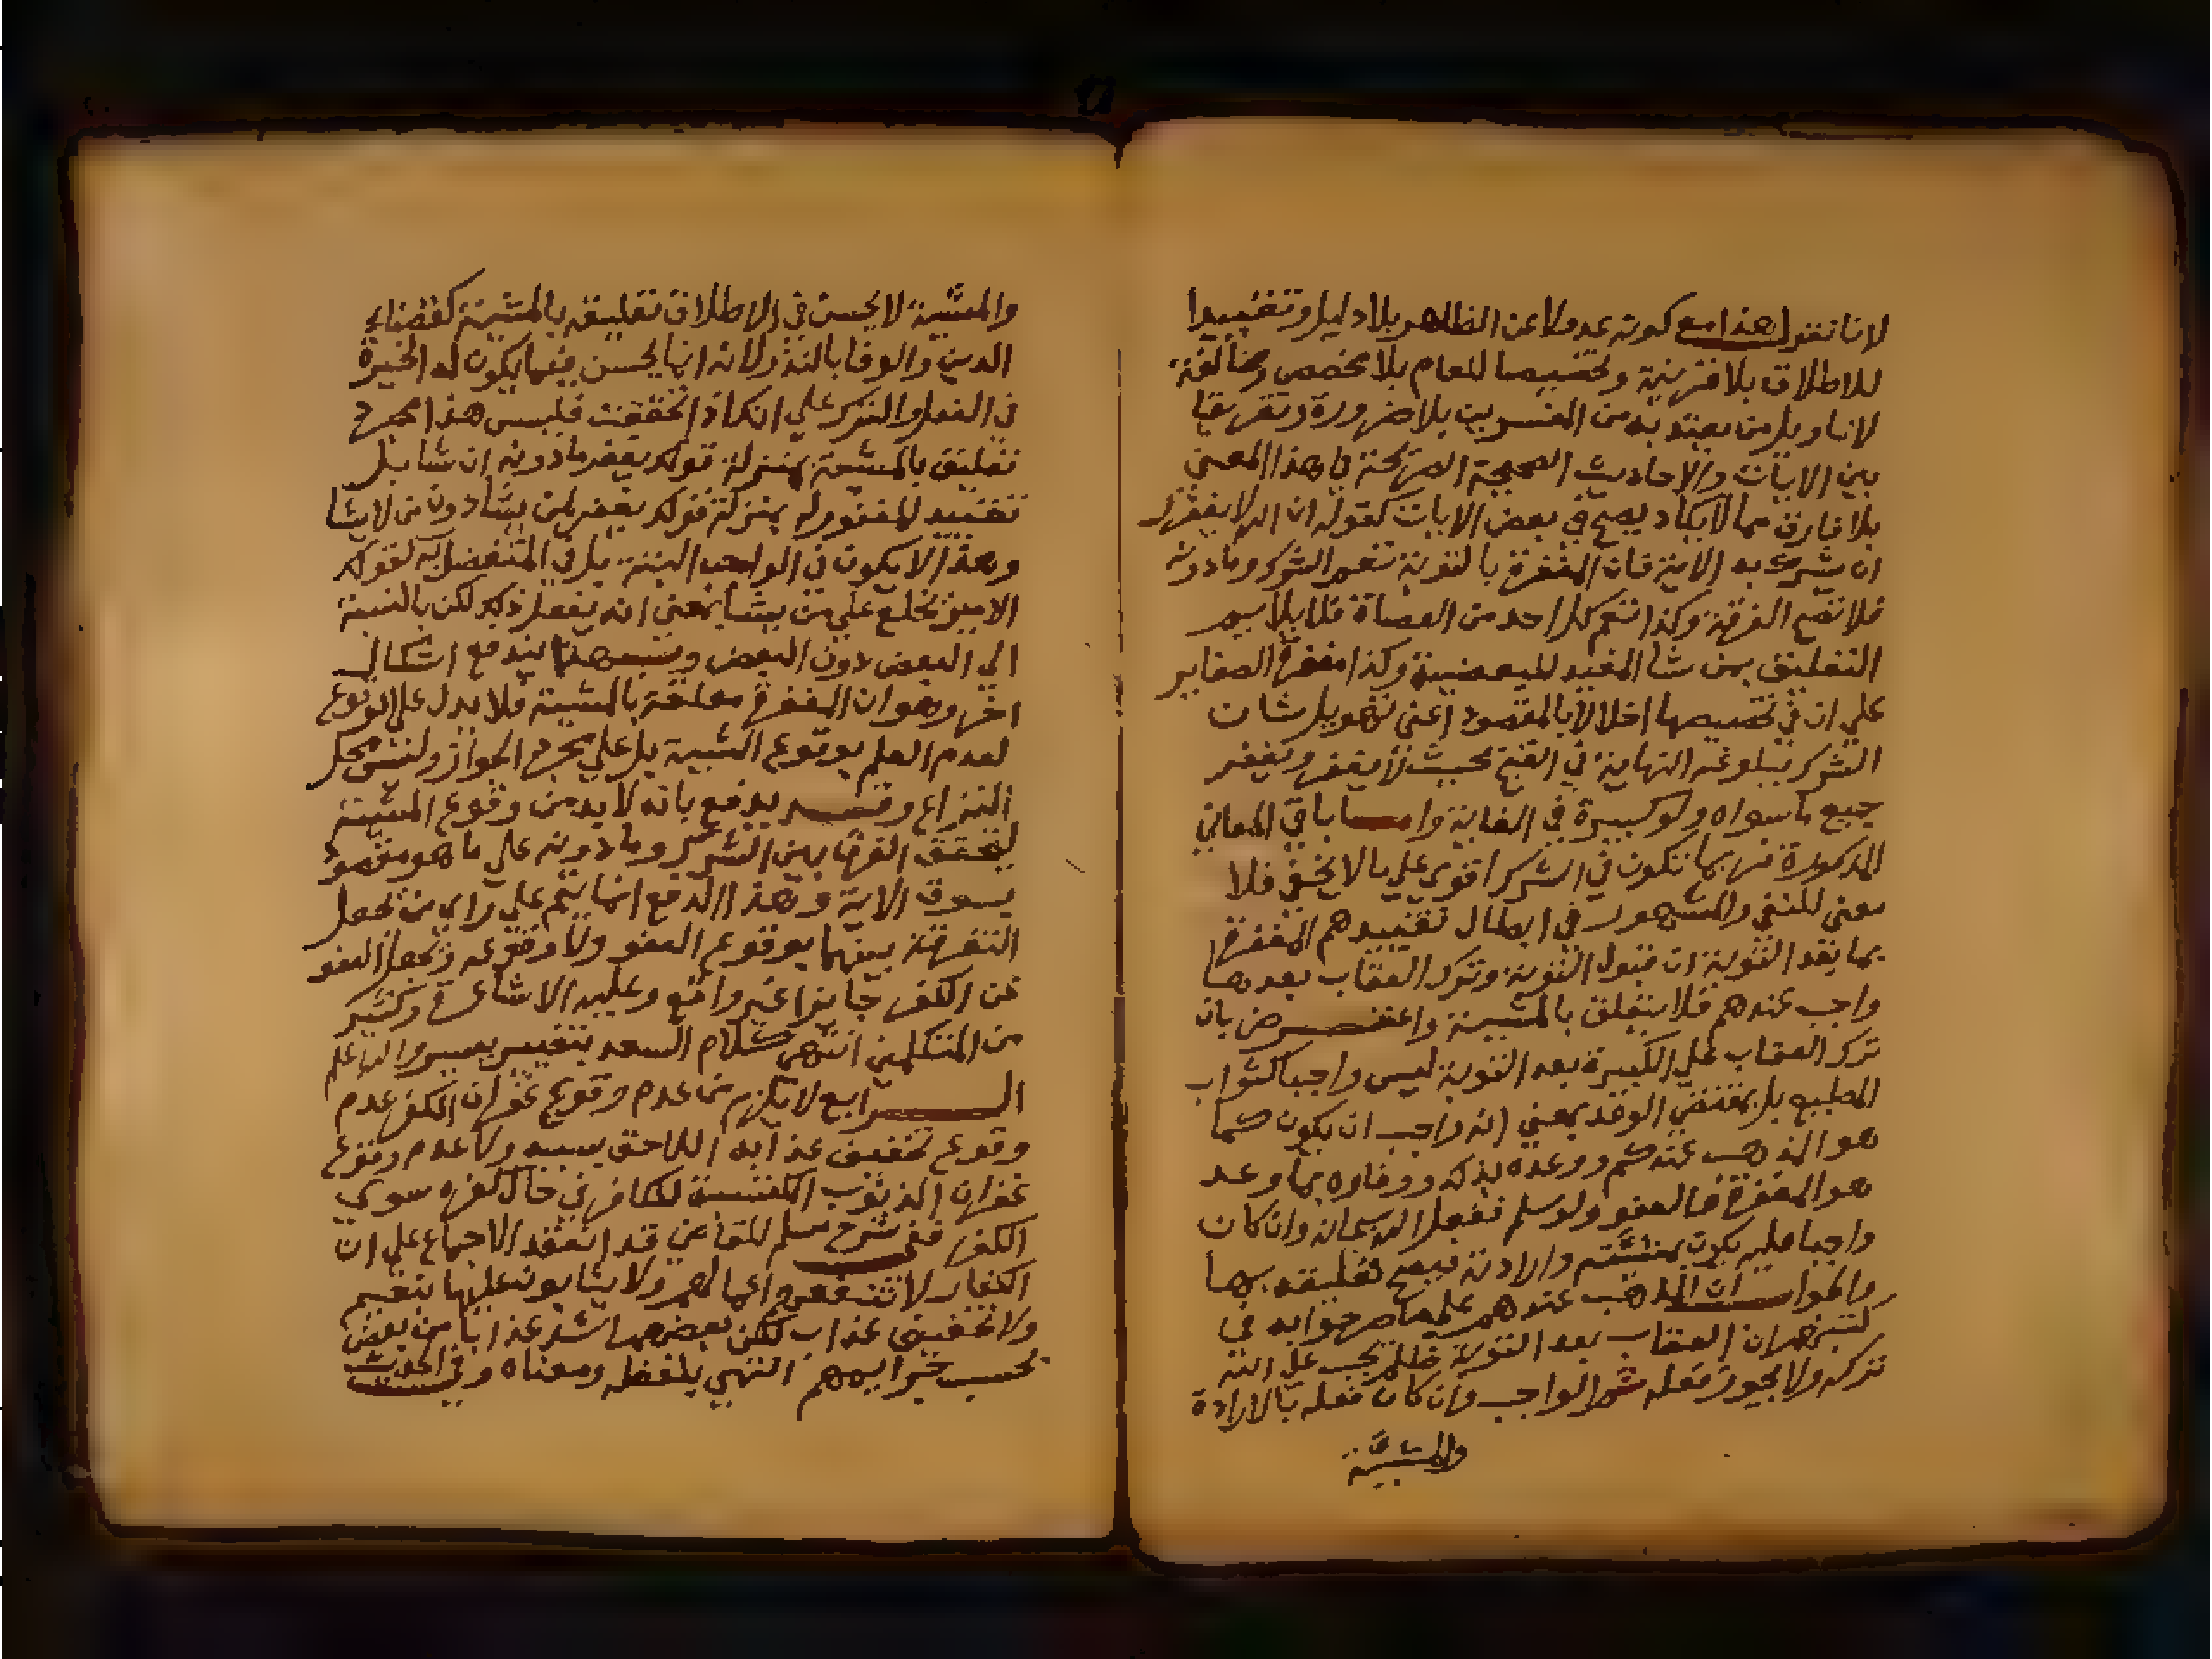 لانا نقول هذا مع كونه عدولا عن الظاهر بلا دليل وتقييدا
للاطلاق بلا قرينة وتخصيصا للعام بلا مخصص ومخالفة
لاقاويل من يعتد به من المفسرين بلا ضرورة وتفريقا
بين الايات والاحاديث الصحيحة الصريحة في هذا المعنى
بلا فارق مما لا يكاد يصح في بعض الايات كقوله ان الله لا يغفر
ان يشرك به الاية فان المغفرة بالتوبة تعم الشرك وما دونه
فلا تصح التفرقة وكذا تعم كل احد من العصاة فلا يلايم
التعليق بمن شا المفيد للبعضية وكذا مغفرة الصغاير
على ان في تخصيصها اخلالا بالمقصود اعني تهويل شان
الشرك ببلوغه النهاية في القبح بحيث لا يغفر ويغفر
جميع ما سواه ولو كبيرة في الغاية واما باقي المعاني
المذكورة فربما تكون في الشرك اقوى على ما لا يخفى فلا
معنى للنفي والمشهور في ابطال تقييدهم المغفرة
بما بعد التوبة ان قبول التوبة وترك العقاب بعدها
واجب عندهم فلا يتعلق بالمشيئة واعترض بان
ترك العقاب على الكبيرة بعد التوبة ليس واجبا كثواب
المطيع بل بمقتضى الوعد بمعنى انه واجب ان يكون كما
هو المذهب عندكم ووعده بذلك ووفاوه بما وعد
هو المغفرة والعفو ولو سلم ففعل الله سبحانه وان كان
واجبا عليه يكون بمشيئته وارادته فيصح تعليقه بها
والجواب ان المذهب عندهم على ما صرحوا به في
كتبهم ان العقاب بعد التوبة ظلم يجب على الله
تركه ولا يجوز فعله ثم الواجب وان كان فعله بالارادة
والمشيئة
والمشيئة لا يحسن في الاطلاق تعليقه بالمشيئة كقضاء
الدين والوفا بالنذر لانه انما يحسن فيما يكون له الخيرة
في الفعل والترك على انك اذا تحققت فليس هذا مجرد
تعليق بالمشيئة بمنزلة قولك يغفر ما دونه ان شا بل
تقييد للمغفور له بمنزلة قولك يغفر لمن يشا دون من لا يشا
وهذا لا يكون في الواجب البتة بل في المتفضل به كقولك
الامير يخلع على من يشا بمعنى انه يفعل ذلك لكن بالنسبة
الى البعض دون البعض وبهذا يندفع اشكال
اخر وهو ان المغفرة معلقة بالمشيئة فلا يدل على الوقوع
لعدم العلم بوقوع المشيئة بل على مجرد الجواز وليس محل
النزاع وقد يدفع بانه لا بد من وقوع المشيئة
ليتحقق الفرق بين الشرك وما دونه على ما هو مقصود
بسوق الاية وهذا الدفع انما يتم على راي من يجعل
التفرقة بينهما بوقوع العفو ولا وقوعه ويجعل العفو
عن الكفر جايزا غير واقع وعليه الاشاعرة وكثير
من المتكلمين انتهى كلام السعد بتغيير يسير والله اعلم
الرابع لا يلزم من عدم وقوع غفران الكفر عدم
وقوع تخفيف عذابه اللاحق بسببه ولا عدم وقوع
غفران الذنوب المكتسبة للكافر في حال كفره سوى
الكفر ففي شرح مسلم للقاضي قد انعقد الاجماع على ان
الكفار لا تنفعهم اعمالهم ولا يثابون عليها بنعيم
ولا تخفيف عذاب لكن بعضهم اشد عذابا من بعض
بحسب جرايمهم انتهى بلفظه ومعناه وفي الحديث